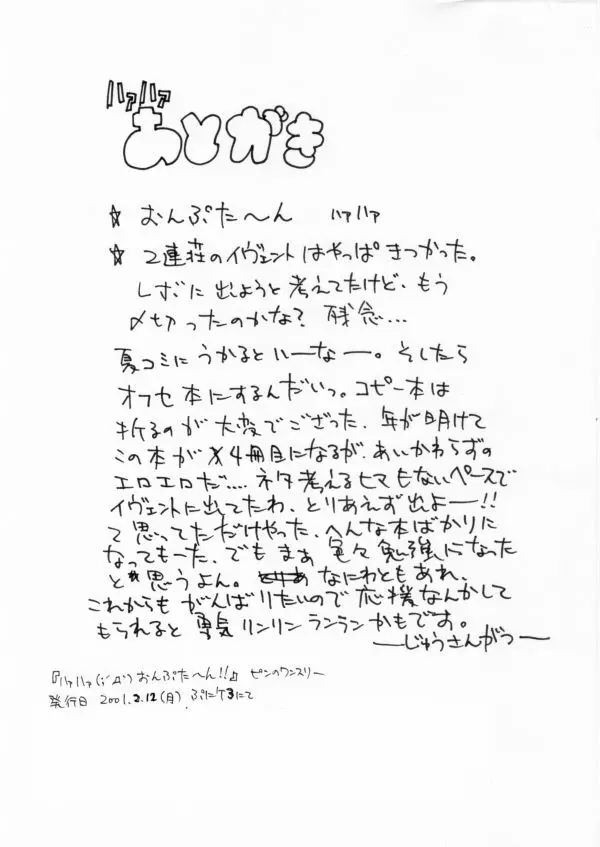 ハァハァ
あとがき
☆ おんぷた〜ん ハァハァ
☆ 2連荘のイヴェントはやっぱきつかった。
レボに出ようと考えてたけど、もう
〆切ったのかな? 残念…
夏コミにうかるといーなー。そしたら
オフセ本にするんだいっ。コピー本は
折るのが大変でござった、年が明けて
この本が4冊目になるが、あいかわらずの
エロエロだ…. ネタ考えるヒマもないペースで
イヴェントに出てたわ、とりあえず出よー!!
て思ってただけやった、へんな本ばかりに
なってもーた、でもまぁ色々勉強になった
と思うよん。なにわともあれ、
これからもがんばりたいので応援なんかして
もられると勇気リンリンランランかもです。
—じゅうさんがつ—
『ハァハァ(;´Д`)おんぷた〜ん!!』 ピンのワンスリー
発行日 2001.2.12(月) ぷにケ3にて